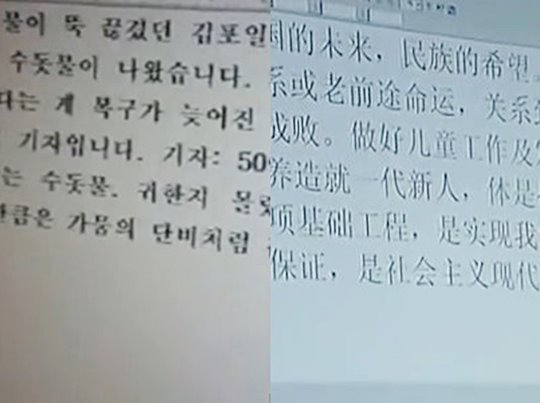 물이 뚝 끊겼던 김포일
수돗물이 나왔습니다.
다는 게 복구가 늦어진
기자입니다. 기자: 50
는 수돗물. 귀한지
만큼은 가뭄의 단비처럼
国的未来，民族的希望。
系或老前途命运，关系
成败。做好儿童工作及
养造就一代新人，体是
项基础工程，是实现我
保证，是社会主义现代